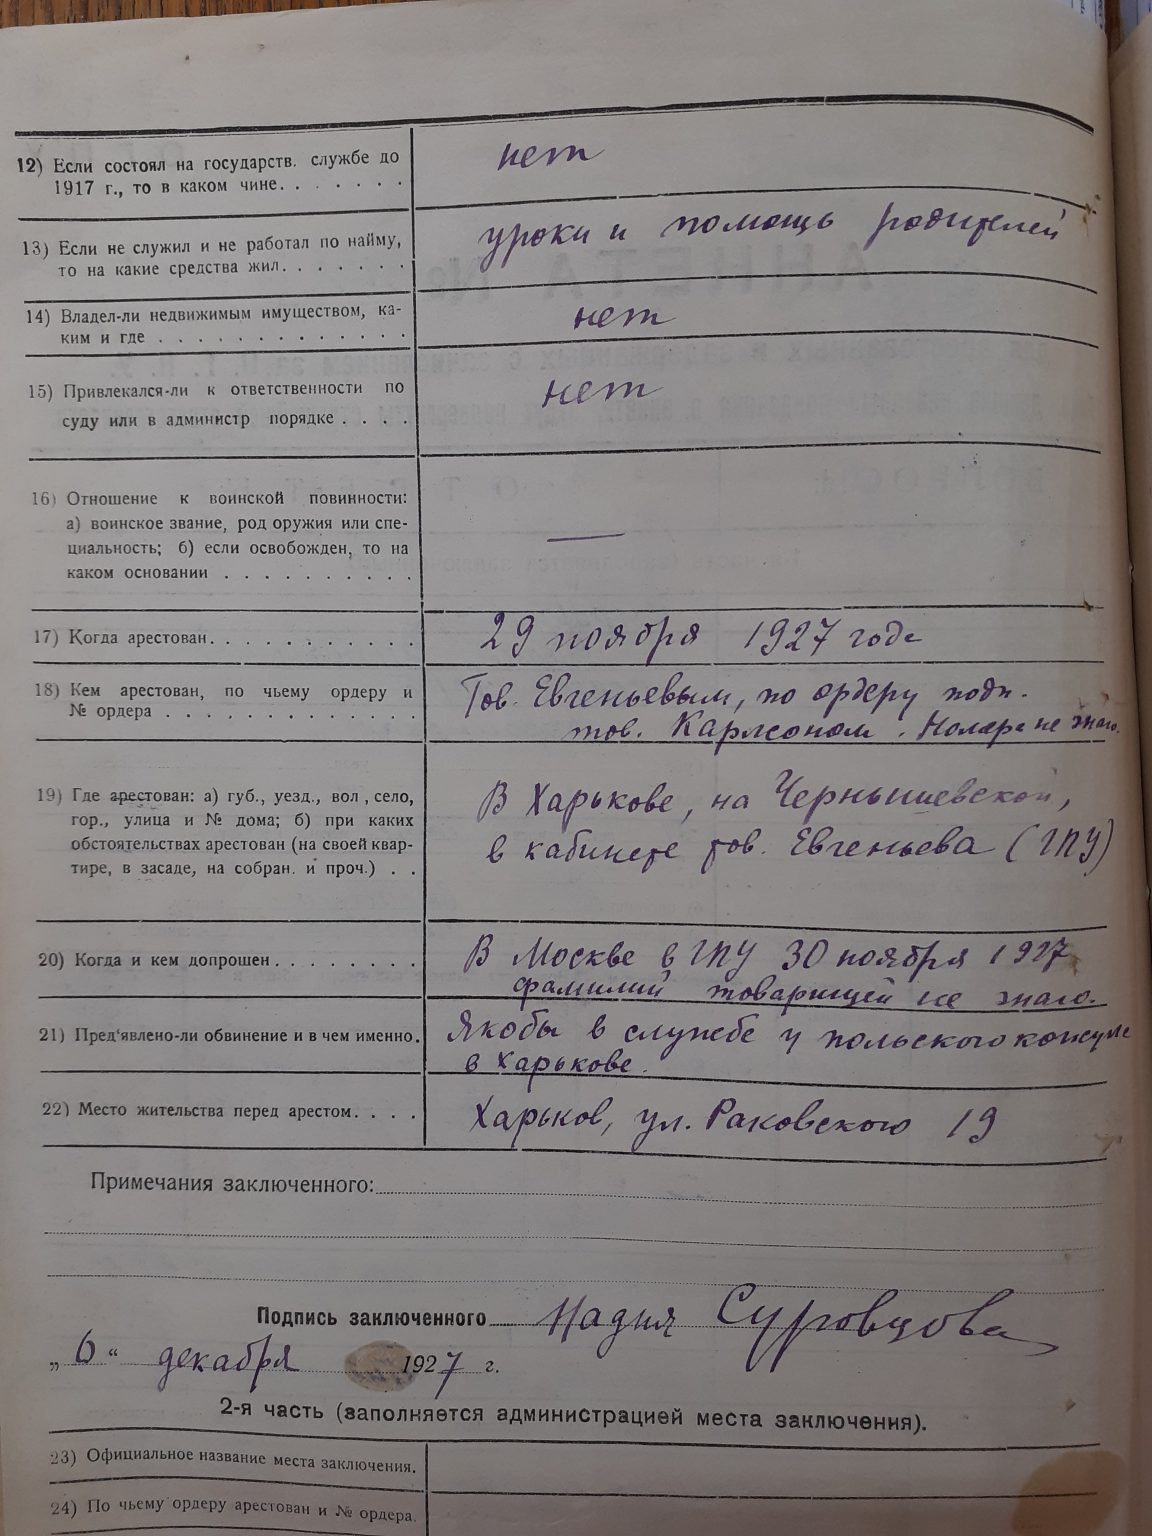 12) Если состоял на государств. службе до
1917 г., то в каком чине. . . . . . .
нет
13) Если не служил и не работал по найму,
то на какие средства жил. . . . . . .
уроки и помощь родителей
14) Владел-ли недвижимым имуществом, ка-
ким и где . . . . . . . . . . . . .
нет
15) Привлекался-ли к ответственности по
суду или в администр порядке . . . .
нет
16) Отношение к воинской повинности:
а) воинское звание, род оружия или спе-
циальность; б) если освобожден, то на
каком основании . . . . . . . . . .
—
17) Когда арестован. . . . . . . . . . .
29 ноября 1927 года
18) Кем арестован, по чьему ордеру и
№ ордера . . . . . . . . . . . . .
Тов. Евгеньевым, по ордеру подп.
тов. Карлсоном. Номера не знаю.
19) Где арестован: а) губ., уезд., вол, село,
гор., улица и № дома; б) при каких
обстоятельствах арестован (на своей квар-
тире, в засаде, на собран. и проч.) . .
В Харькове, на Чернышевской,
в кабинете тов. Евгеньева (ГПУ)
20) Когда и кем допрошен. . . . . . . .
В Москве в ГПУ 30 ноября 1927
фамилий товарищей не знаю.
21) Пред'явлено-ли обвинение и в чем именно.
Якобы в службе у польского консула
в Харькове.
22) Место жительства перед арестом. . . .
Харьков, ул. Раковского 19
Примечания заключенного:
Подпись заключенного Надия Суровцова
„6“ декабря 1927 г.
2-я часть (заполняется администрацией места заключения).
23) Официальное название места заключения.
24) По чьему ордеру арестован и № ордера.